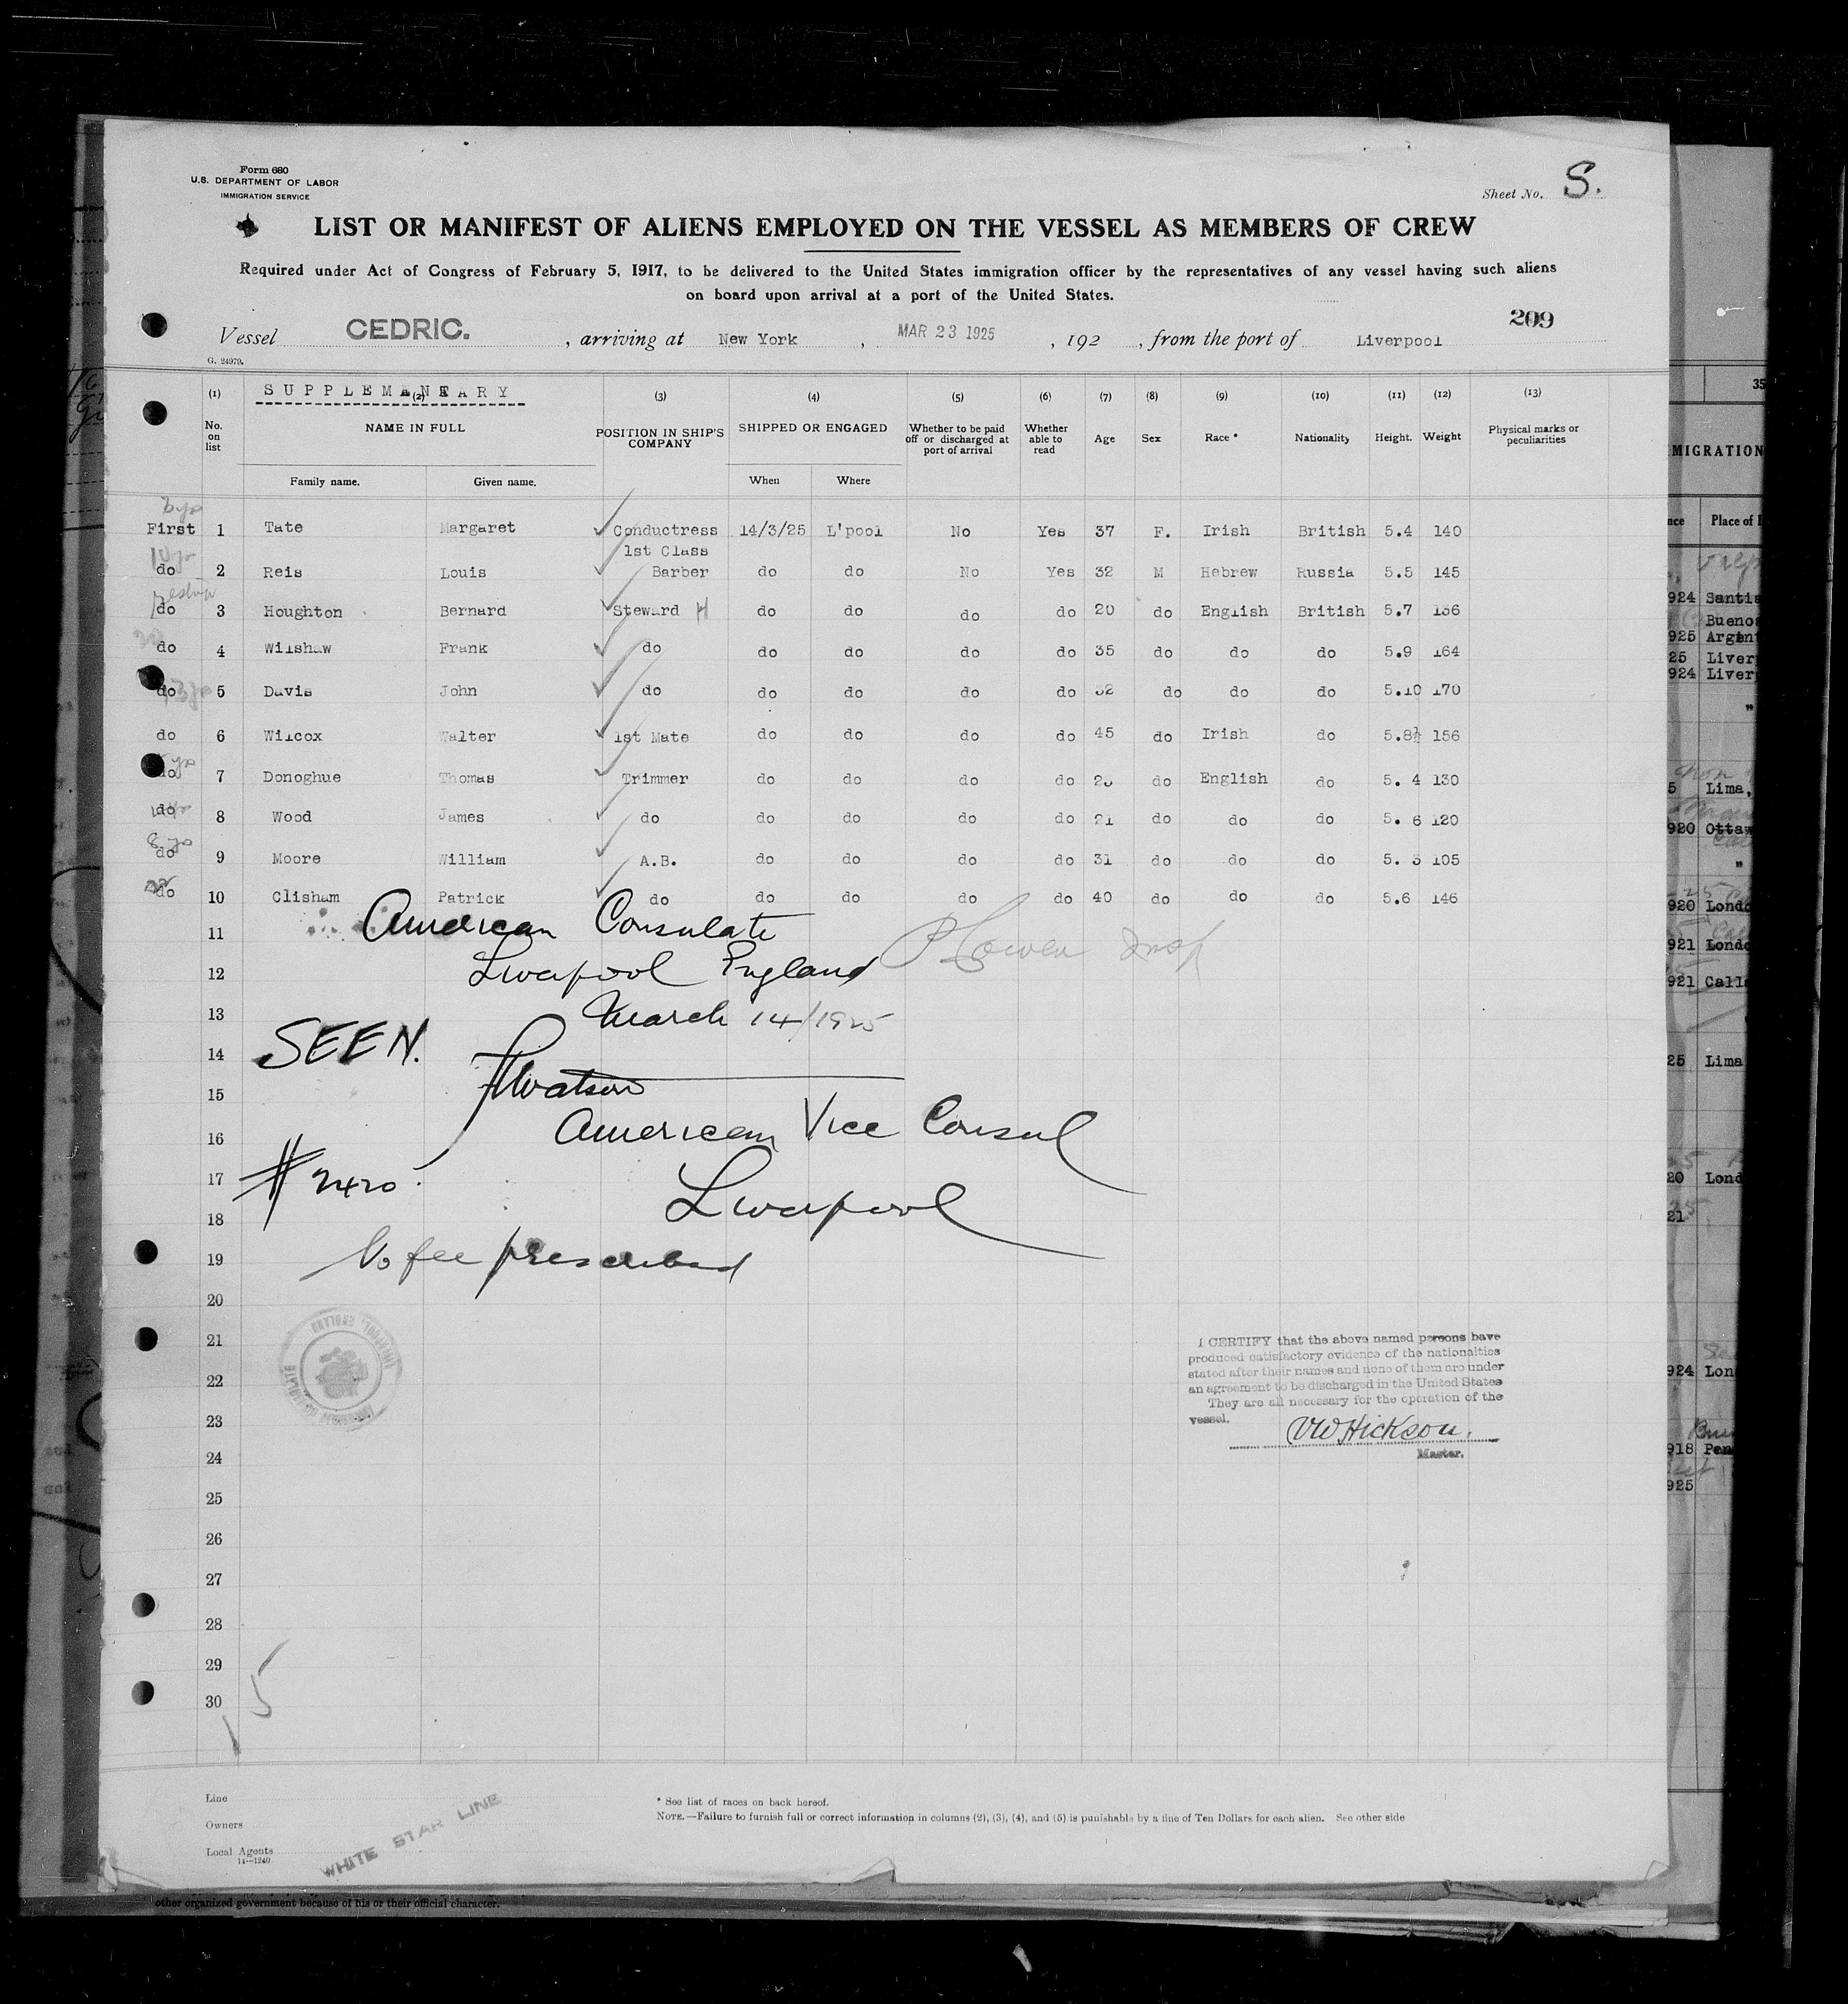 Form 680
U.S. DEPARTMENT OF LABOR
IMMIGRATION SERVICE
Sheet No. S.
LIST OR MANIFEST OF ALIENS EMPLOYED ON THE VESSEL AS MEMBERS OF CREW
Required under Act of Congress of February 5, 1917, to be delivered to the United States immigration officer by the representatives of any vessel having such aliens
on board upon arrival at a port of the United States.
209
Vessel CEDRIC. , arriving at New York , MAR 23 1925 , 192 , from the port of Liverpool
G. 24979.
SUPPLEMENTARY
(1) (2) (3) (4) (5) (6) (7) (8) (9) (10) (11) (12) (13)
No. on list NAME IN FULL POSITION IN SHIP'S COMPANY SHIPPED OR ENGAGED Whether to be paid off or discharged at port of arrival Whether able to read Age Sex Race * Nationality Height. Weight Physical marks or peculiarities
Family name. Given name. When Where
First 1 Tate Margaret Conductress 14/3/25 L'pool No Yes 37 F. Irish British 5.4 140
do 2 Reis Louis 1st Class Barber do do No Yes 32 M Hebrew Russia 5.5 145
do 3 Houghton Bernard Steward H do do do do 20 do English British 5.7 136
do 4 Wilshaw Frank do do do do do 35 do do do 5.9 164
do 5 Davis John do do do do do 32 do do do 5.10 170
do 6 Wilcox Walter 1st Mate do do do do 45 do Irish do 5.8½ 156
do 7 Donoghue Thomas Trimmer do do do do do English do 5. 4 130
do 8 Wood James do do do do do 21 do do do 5. 6 120
do 9 Moore William A.B. do do do do 31 do do do 5. 3 105
do 10 Clisham Patrick do do do do do 40 do do do 5.6 146
11
12
13
14
15
16
17
18
19
20
21
22
23
24
25
26
27
28
29
30
American Consulate
Liverpool England
March 14/1925
SEEN.
Watson
American Vice Consul
Liverpool
# 2420
No fee prescribed
I CERTIFY that the above named persons have
produced satisfactory evidence of the nationalties
stated after their names and none of them are under
an agreement to be discharged in the United States
They are all necessary for the operation of the
vessel.
VW Hickson.
Master.
15
Line
Owners
Local Agents
14—1240
WHITE STAR LINE
* See list of races on back hereof.
NOTE.—Failure to furnish full or correct information in columns (2), (3), (4), and (5) is punishable by a fine of Ten Dollars for each alien. See other side
other organized government because of his or their official character.